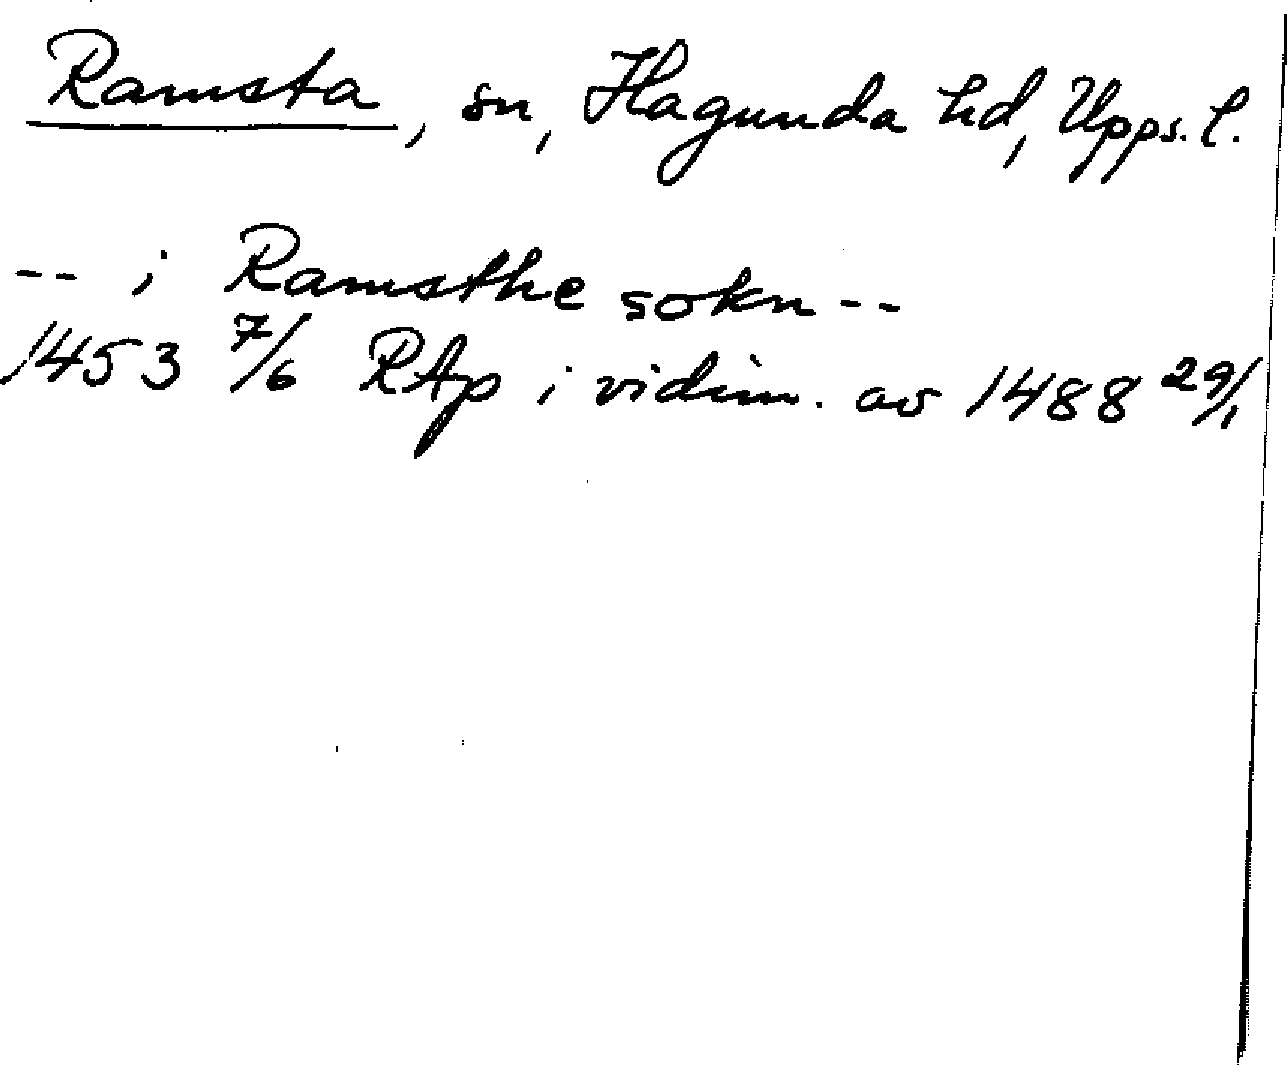 Ramsta, sn, Hagunda hd, Upps. l.
-- i Ramsthe sokn --
1453 7/6 RAp i vidim. av 1488 29/1